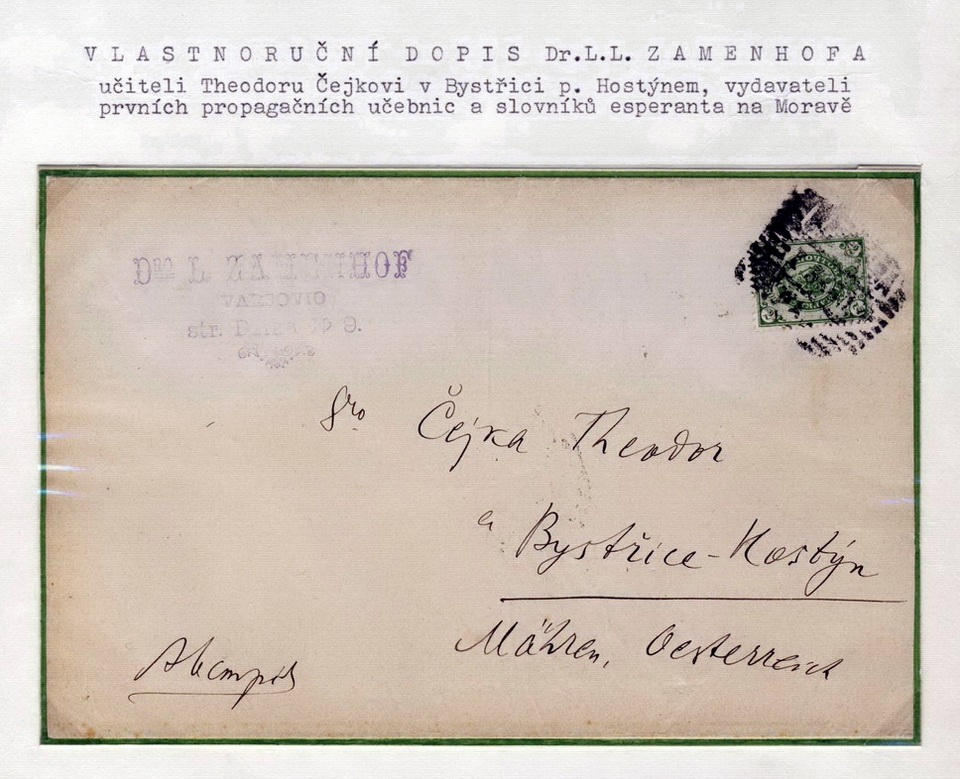 VLASTNORUČNÍ DOPIS Dr.L.L. ZAMENHOFA
učiteli Theodoru Čejkovi v Bystřici p. Hostýnem, vydavateli
prvních propagačních učebnic a slovníků esperanta na Moravě
L. ZAMENHOF
VARSOVIO
str. 9.
Čejka Theodor
Bystřice-Hostýn
Mähren, Oesterreich